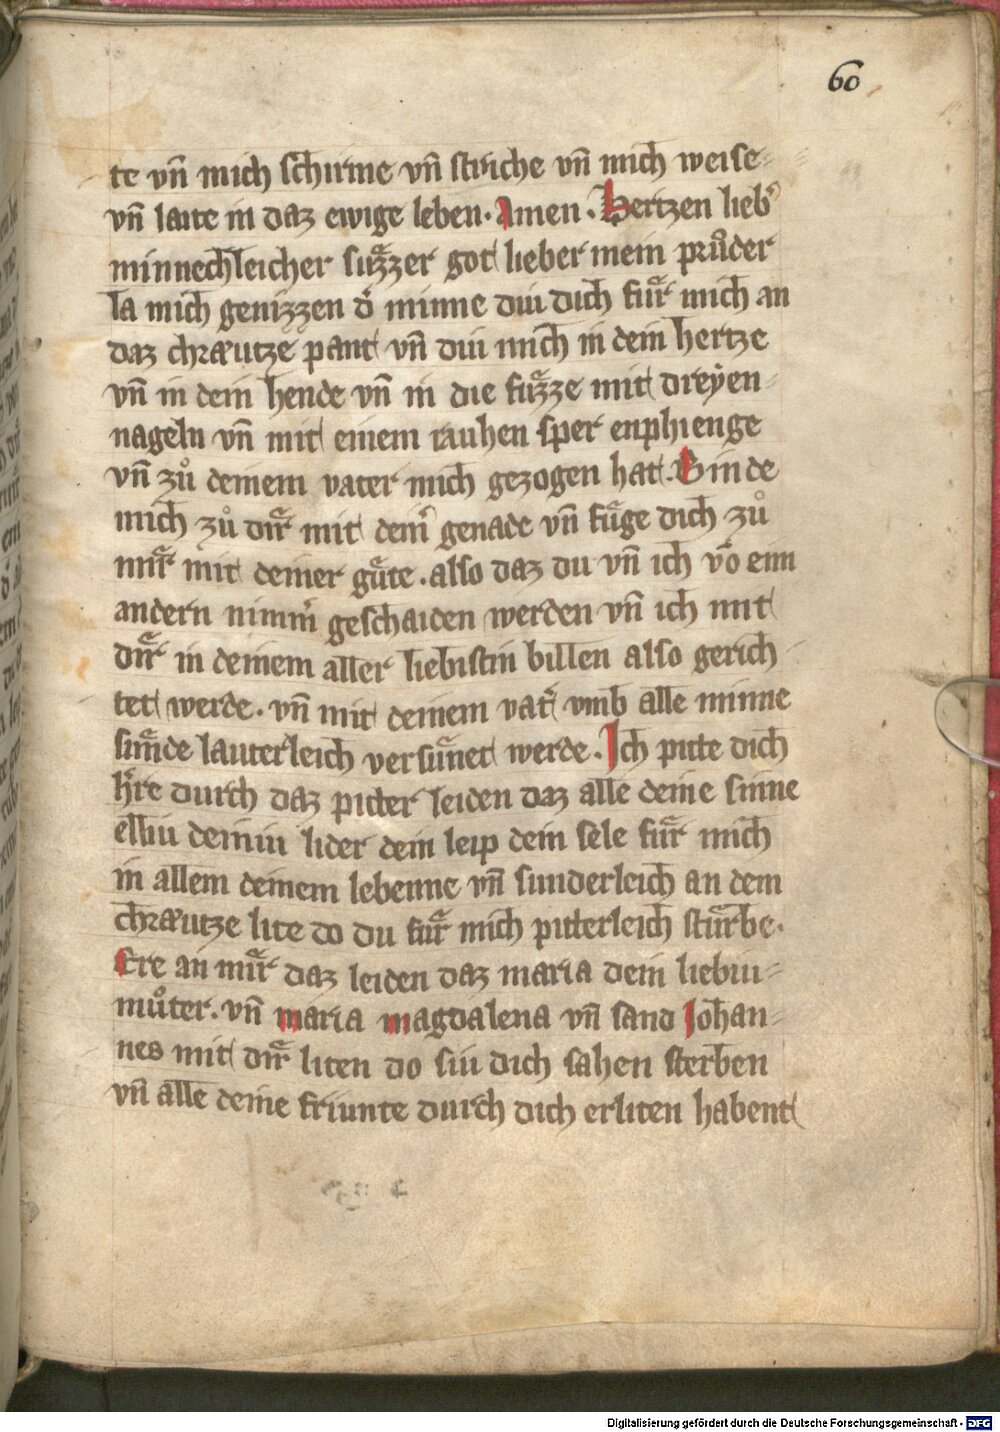 60
te vn̄ mich schirme vn̄ striche vn̄ mich weise
vn̄ laite in daz ewige leben. Amen. Hertzen lieb᾽
minnechleicher süͤzzer got lieber mein průder
la mich genizzen d᾽ minne diu dich fuͤr mich an
daz chræutze pant vn̄ diu mich in dein hertze
vn̄ in dein hende vn̄ in die fuͤzze mit dreyen
nageln vn̄ mit einem rauhen sper enphienge
vn̄ zů deinem vater mich gezogen hat. Binde
mich zů dir mit dein᾽ genade vn̄ fuͤge dich zů
mir mit deiner guͤte. also daz du vn̄ ich vō ein
andern nimm᾽ geschaiden werden vn̄ ich mit
dir in deinem aller liebistin willen also gerich
tet werde. vn̄ mit deinem vat᾽ vmb alle minne
suͤnde lauterleich versuͤnet werde. Ich pitte dich
h᾽re durch daz pitter leiden daz alle deine sinne
elliu deiniu lider dein leip dein sele fuͤr mich
in allem deinem lebenne vn̄ sunderleich an dem
chræutze lite do du fuͤr mich pitterleich stuͤrbe.
Ere an mir daz leiden daz maria dein liebiu
můter. vn̄ maria magdalena vn̄ sand Johan
nes mit dir liten do siu dich sahen sterben
vn̄ alle deine friunte durch dich erliten habent
Digitalisierung gefördert durch die Deutsche Forschungsgemeinschaft - DFG